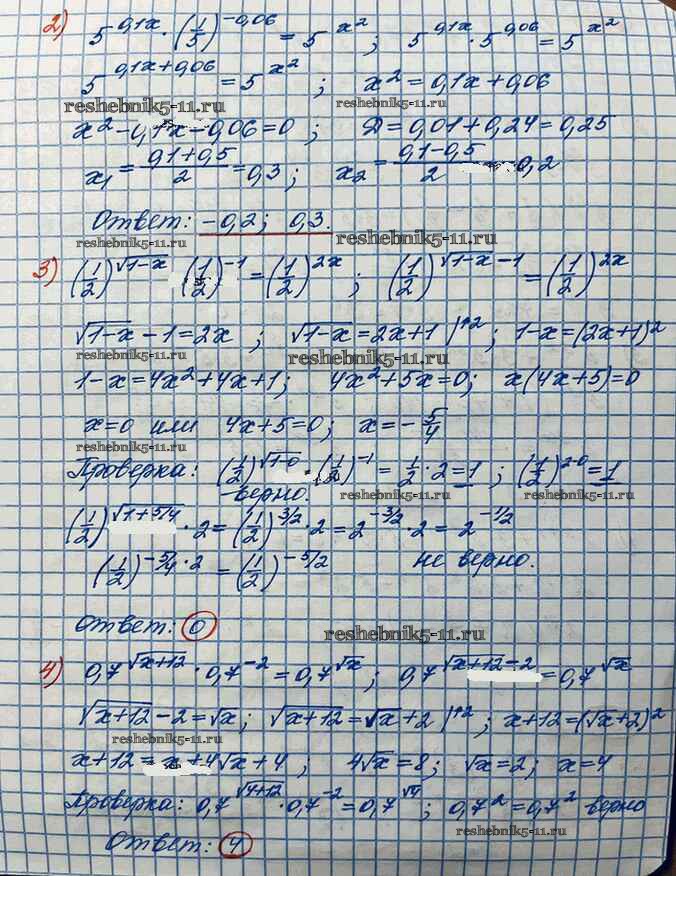 2) 5^(0,1x) · (1/5)^(-0,06) = 5^(x²) ; 5^(0,1x) · 5^(0,06) = 5^(x²)
5^(0,1x+0,06) = 5^(x²) ; x² = 0,1x + 0,06
reshebnik5-11.ru reshebnik5-11.ru
x² - 0,1x - 0,06 = 0 ; Д = 0,01 + 0,24 = 0,25
x₁ = (0,1+0,5)/2 = 0,3 ; x₂ = (0,1-0,5)/2 0,2
Ответ: -0,2; 0,3.
reshebnik5-11.ru reshebnik5-11.ru
3) (1/2)^(√(1-x)) (1/2)^(-1) = (1/2)^(2x) ; (1/2)^(√(1-x) - 1) = (1/2)^(2x)
√(1-x) - 1 = 2x ; √(1-x) = 2x+1 |↑2 ; 1-x = (2x+1)²
reshebnik5-11.ru reshebnik5-11.ru
1-x = 4x² + 4x + 1; 4x² + 5x = 0; x(4x+5) = 0
x = 0 или 4x+5 = 0; x = -5/4
reshebnik5-11.ru
Проверка: (1/2)^(√(1-0)) · (1/2)^(-1) = 1/2 · 2 = 1 ; (1/2)^(2·0) = 1
- верно. reshebnik5-11.ru
(1/2)^(√(1+5/4)) · 2 = (1/2)^(3/2) · 2 = 2^(-3/2) · 2 = 2^(-1/2)
(1/2)^(-5/4 · 2) = (1/2)^(-5/2) не верно.
reshebnik5-11.ru
Ответ: 0
reshebnik5-11.ru
4) 0,7^(√(x+12)) · 0,7^(-2) = 0,7^(√x) ; 0,7^(√(x+12) - 2) = 0,7^(√x)
√(x+12) - 2 = √x ; √(x+12) = √x + 2 |↑2 ; x+12 = (√x+2)²
reshebnik5-11.ru
x+12 = x + 4√x + 4 ; 4√x = 8; √x = 2; x = 4
Проверка: 0,7^(√(4+12)) · 0,7^(-2) = 0,7^(√4) ; 0,7² = 0,7² верно
reshebnik5-11.ru
Ответ: 4